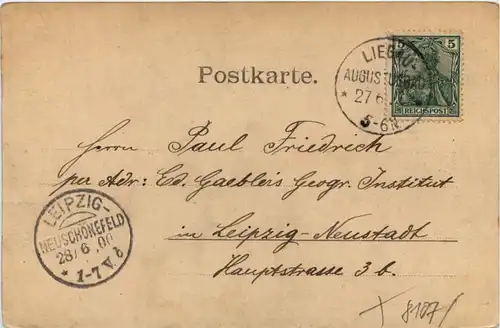 Postkarte.
LIEGAU-
AUGUSTUSBAD
* 27 6
5-6N.
5 5
REICHSPOST
Herrn Paul Friedrich
per Adr: Ed. Gaebler's Geogr. Institut
in Leipzig-Neustadt
Hauptstrasse 3 b.
LEIPZIG-
NEUSCHÖNEFELD
28/6.00
* 1-7 V. b
8107